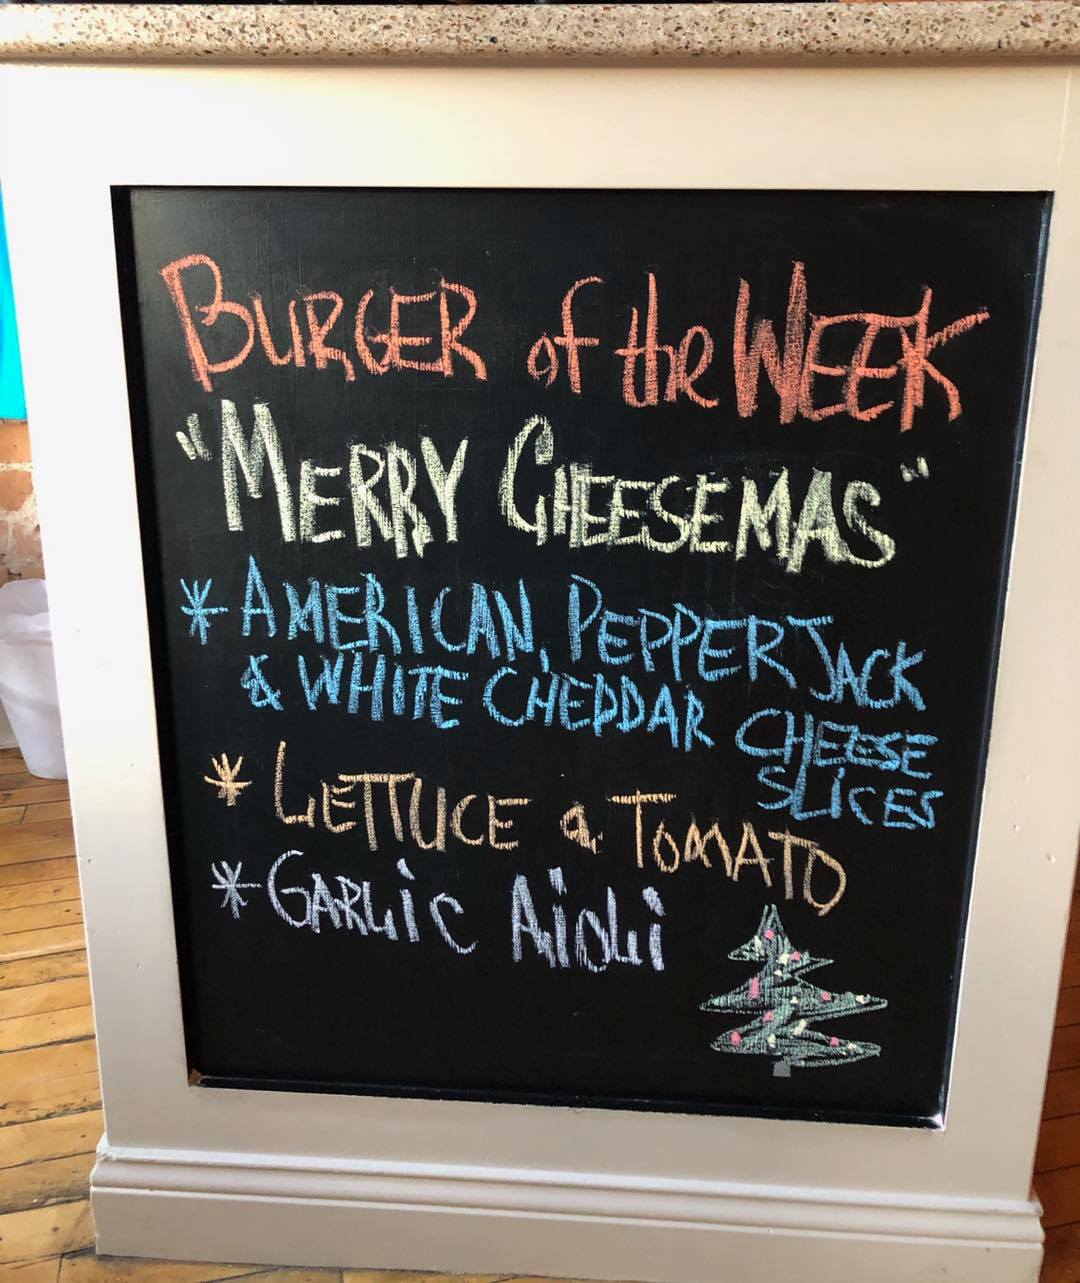 BURGER of the WEEK
"MERRY CHEESEMAS"
* AMERICAN, PEPPER JACK
& WHITE CHEDDAR CHEESE
SLICES
* LETTUCE & TOMATO
* GARLIC AIOLI